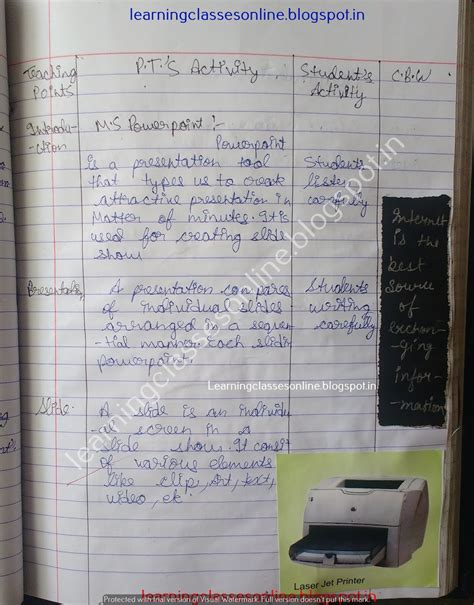 learningclassesonline.blogspot.in
Teaching Points
P.T.'S Activity
Student's Activity
C.B.W
Introdu-
-ction
M.S Powerpoint :-
Powerpoint
is a presentation tool
that types us to create
attractive presentation in
Matter of minutes. It is
used for creating slide
show
Students
listen
carefully
Internet
is the
best
source
of
exchan-
-ging
infor-
-mation
Presentation
A presentation compares
of individual slides
arranged in a sequen-
-tial manner. Each slide
powerpoint.
Students
writing
carefully
Learningclassesonline.blogspot.in
Slide.
A slide is an individu-
-al screen in a
slide show. It consist
of various elements
like clip, Art, text,
video, etc.
learningclassesonline.blogspot.in
Laser Jet Printer
learningclassesonline.blogspot.in
Protected with trial version of Visual Watermark. Full version doesn't put this mark.